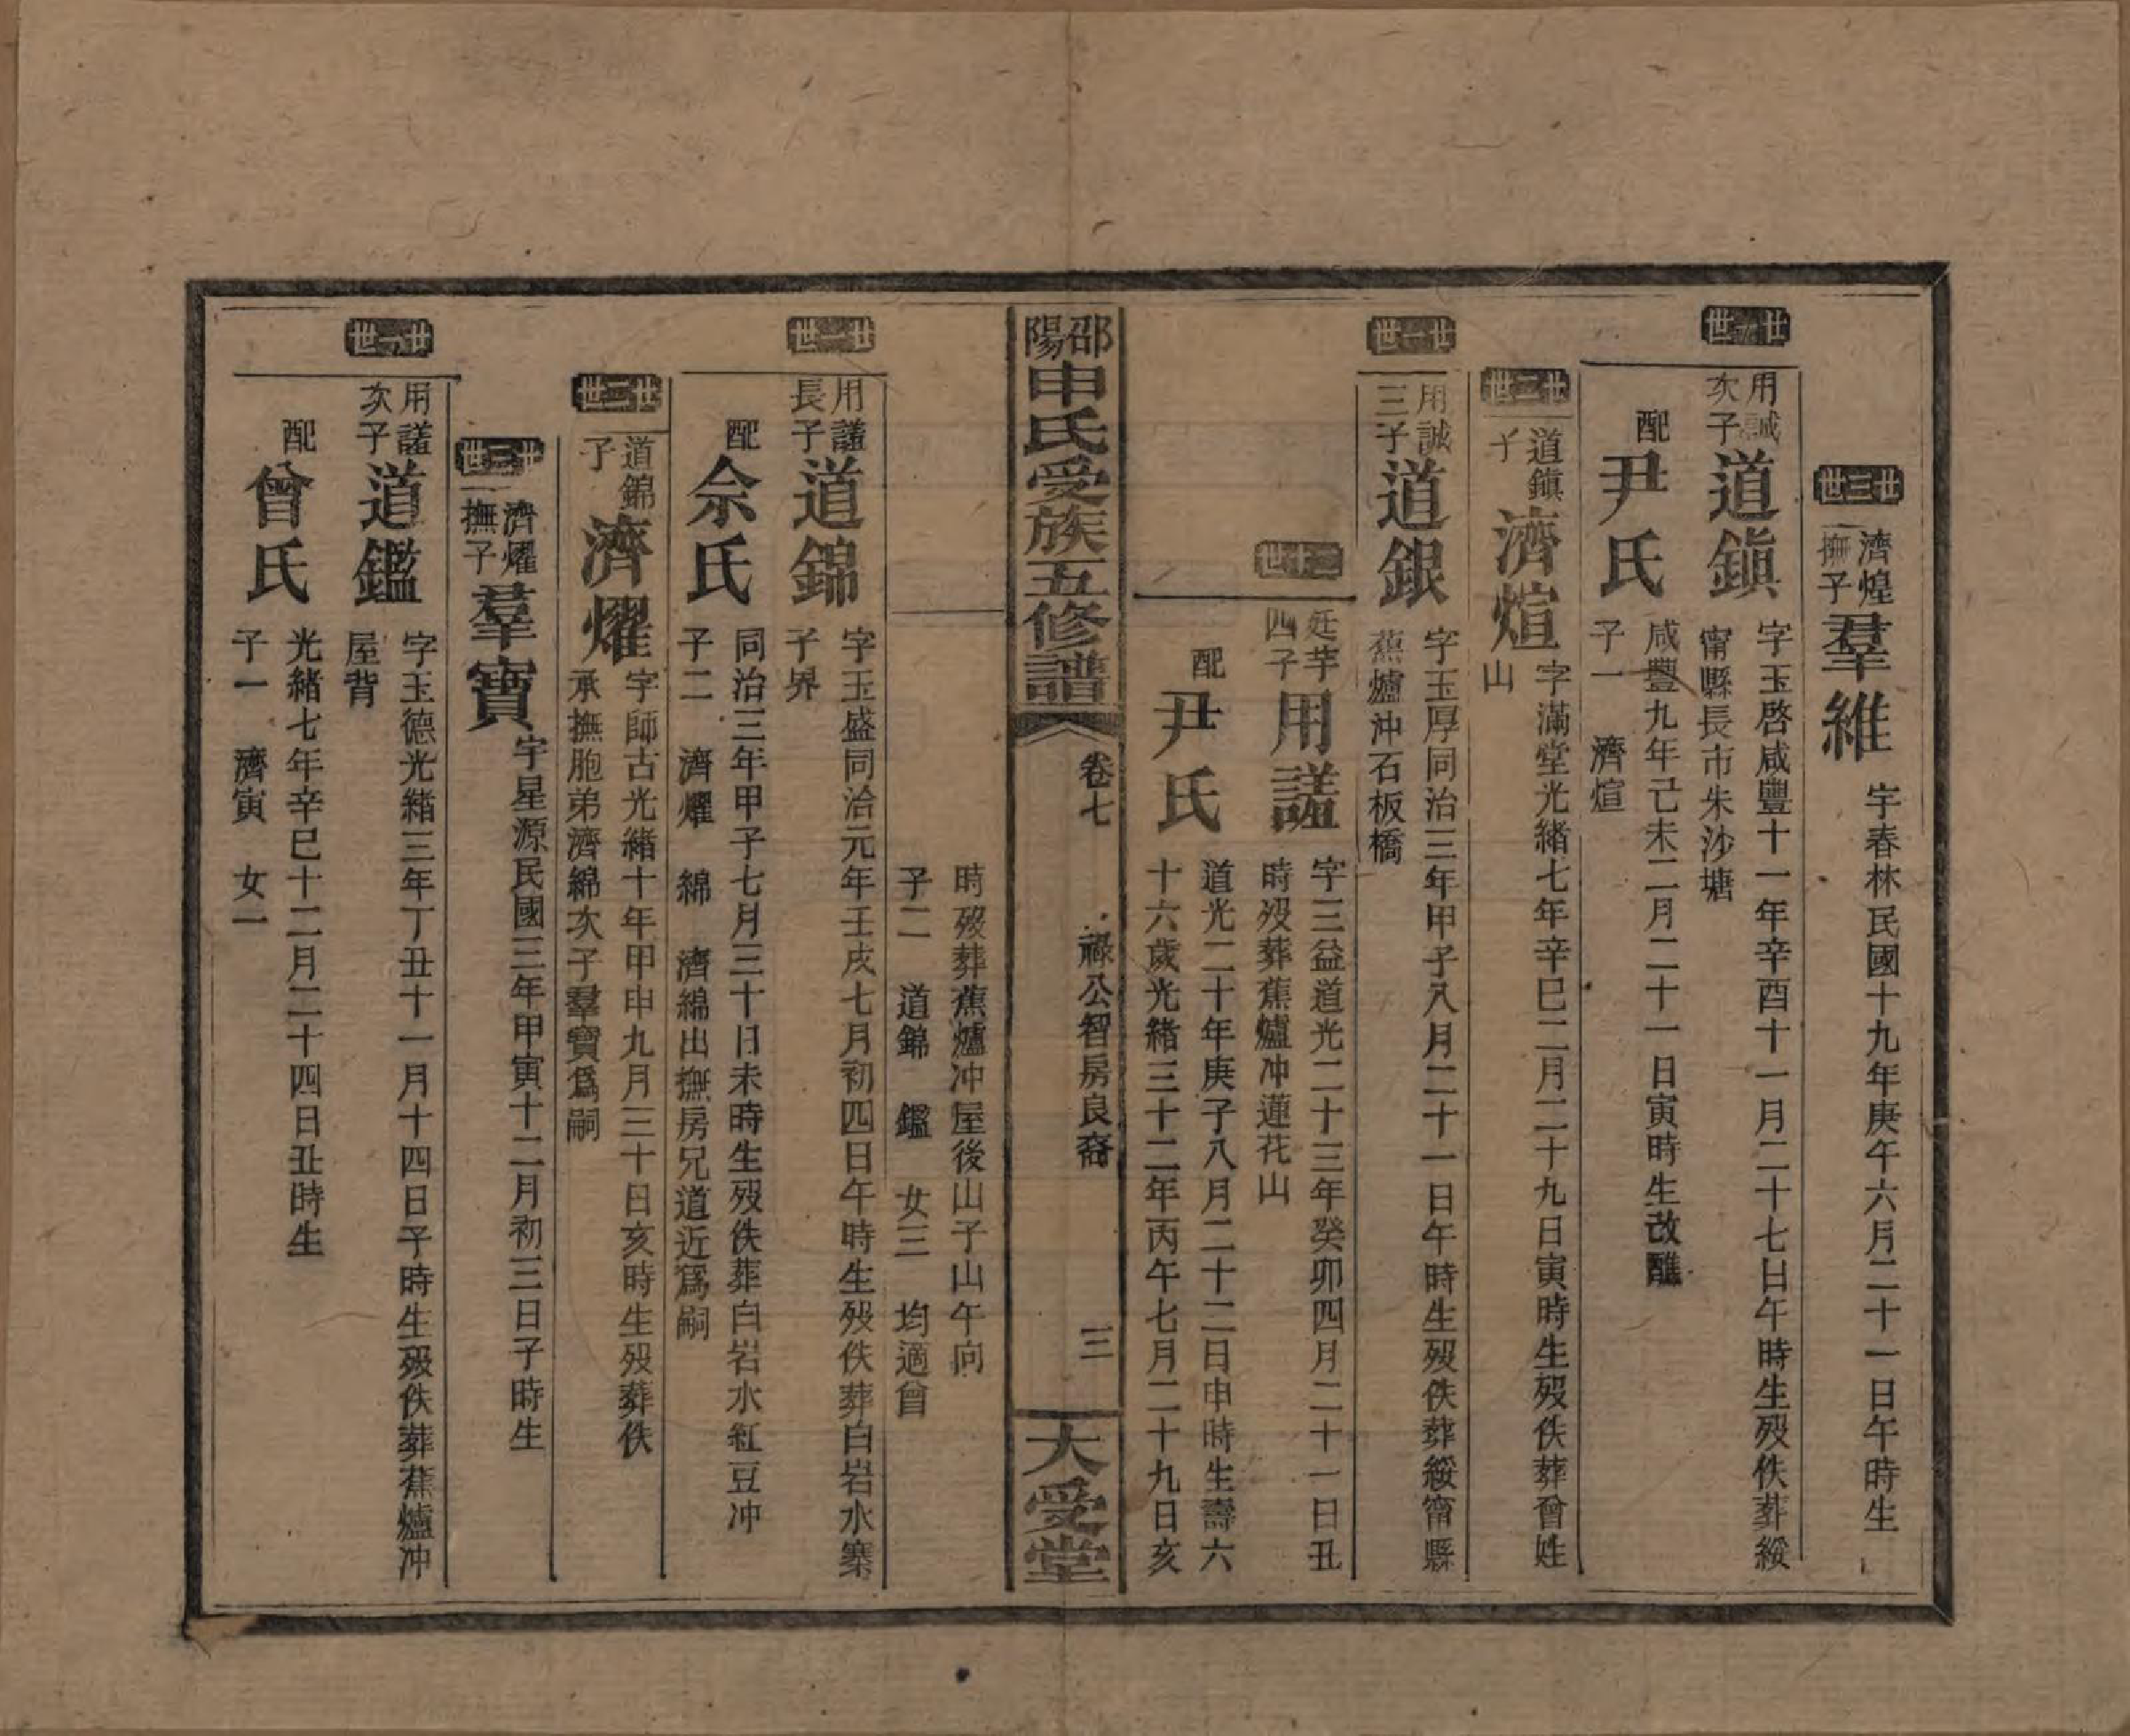 廿三世
濟煌
撫子
羣維
字春林民國十九年庚午六月二十一日午時生
廿一世
用誠
次子
道鎭
字玉啓咸豐十一年辛酉十一月二十七日午時生歿佚葬綏
甯縣長市朱沙塘
配
尹氏
咸豐九年己未二月二十一日寅時生改醮
子一 濟煊
廿二世
道鎭
子
濟煊
字滿堂光緒七年辛巳二月二十九日寅時生歿佚葬曾姓
山
廿一世
用誠
三子
道銀
字玉厚同治三年甲子八月二十一日午時生歿佚葬綏甯縣
蕉爐沖石板橋
二十世
廷芋
四子
用謹
字三益道光二十三年癸卯四月二十一日丑
時歿葬蕉爐冲蓮花山
配
尹氏
道光二十年庚子八月二十二日申時生壽六
十六歲光緒三十二年丙午七月二十九日亥
邵陽申氏受族五修譜
卷七
祿公智房良裔
三
大受堂
時歿葬蕉爐冲屋後山子山午向
子二 道錦 鑑 女三 均適曾
廿一世
用謹
長子
道錦
字玉盛同治元年壬戌七月初四日午時生歿佚葬白岩水寨
子界
配
佘氏
同治三年甲子七月三十日未時生歿佚葬白岩水紅豆冲
子二 濟燿 綿 濟綿出撫房兄道近爲嗣
廿二世
道錦
子
濟燿
字師古光緒十年甲申九月三十日亥時生歿葬佚
承撫胞弟濟綿次子羣寶爲嗣
廿三世
濟燿
撫子
羣寶
字星源民國三年甲寅十二月初三日子時生
廿一世
用謹
次子
道鑑
字玉德光緒三年丁丑十一月十四日子時生歿佚葬蕉爐冲
屋背
配
曾氏
光緒七年辛巳十二月二十四日丑時生
子一 濟寅 女一